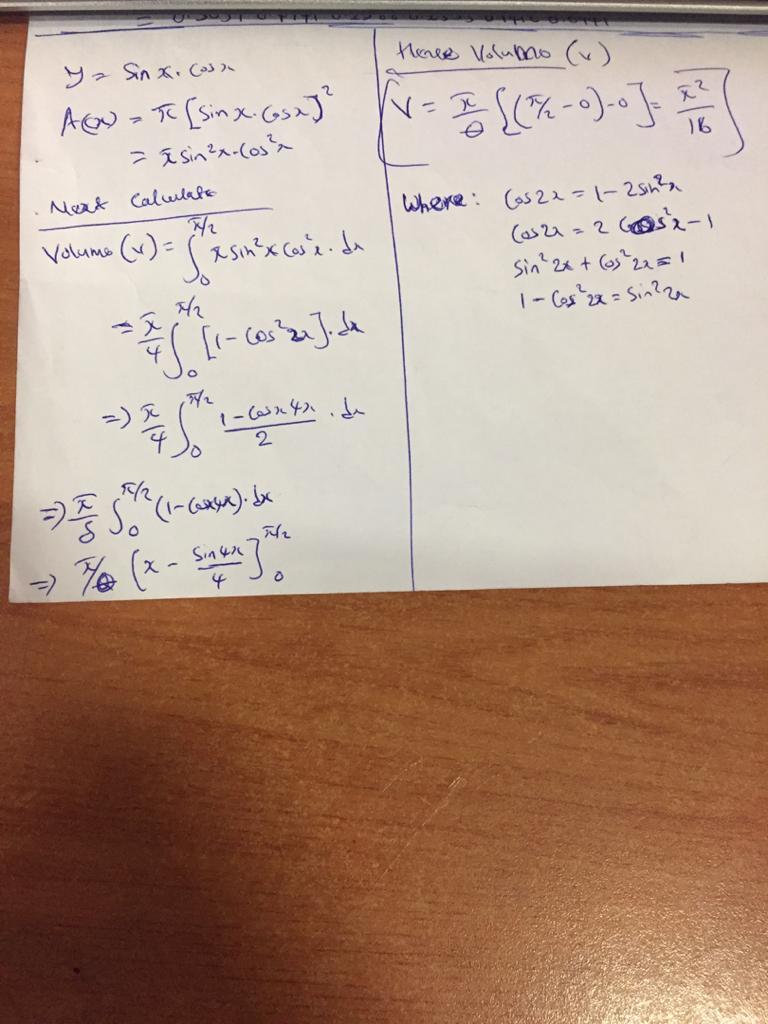 y = Sin x. Cos x
A(x) = π [Sin x. Cos x]²
= π sin²x. Cos²x
. Next Calculate
Volume (v) = ∫₀^π/2 π sin²x Cos²x . dx
= π/4 ∫₀^π/2 [1 - Cos²2x] . dx
=) π/4 ∫₀^π/2 (1 - Cosx 4x)/2 . dx
=) π/8 ∫₀^π/2 (1 - Cos4x) . dx
=) π/8 (x - Sin4x/4]₀^π/2
Hence Volume (v)
[V = π/8 {(π/2 - 0) - 0] = π²/16]
Where: Cos2x = 1 - 2sin²x
Cos2x = 2 Cos²x - 1
Sin²2x + Cos²2x = 1
1 - Cos²2x = Sin²2x